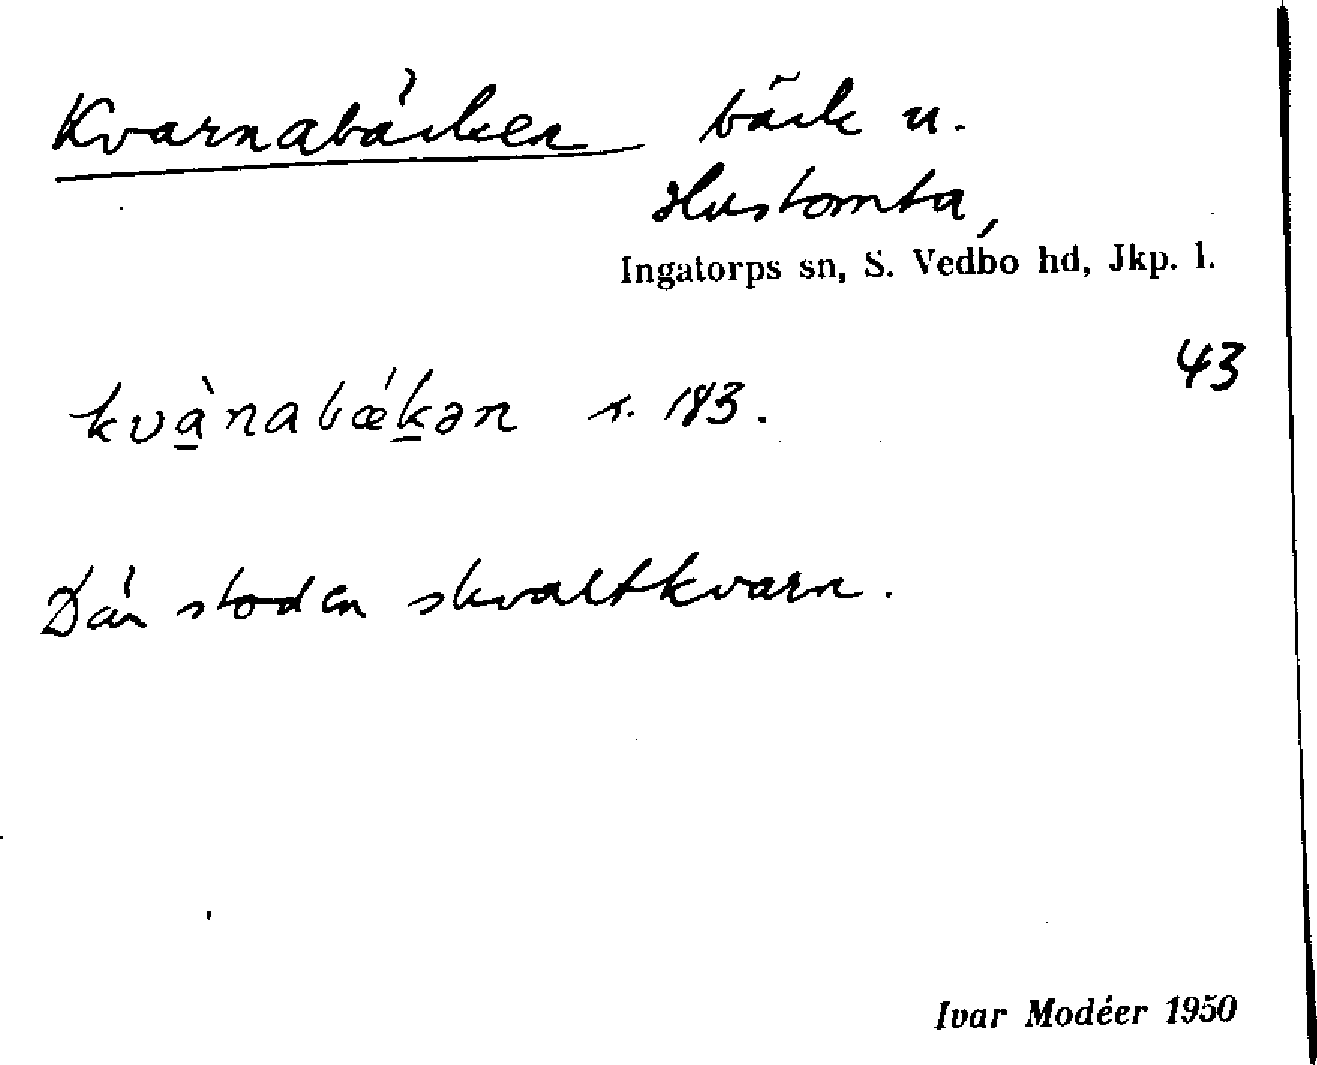 Kvarnabäcken bäck u.
Hustomta,
Ingatorps sn, S. Vedbo hd, Jkp. l.
43
kvànabǽkən s. 183.
Där stod en skvaltkvarn.
Ivar Modéer 1950